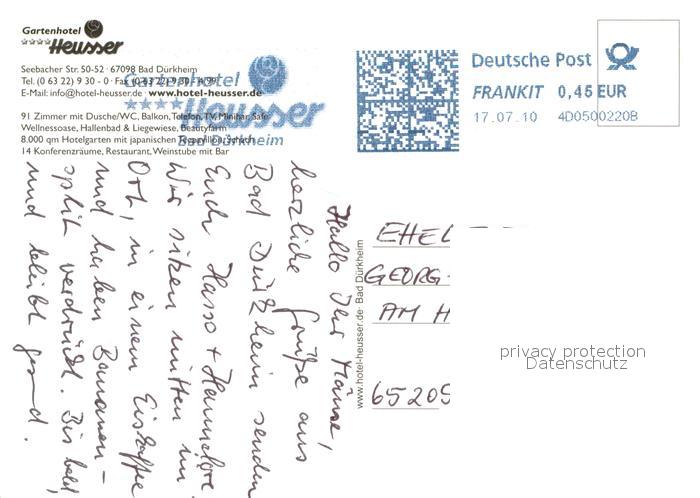 Gartenhotel
**** Heusser
Seebacher Str. 50-52 · 67098 Bad Dürkheim
Tel. (0 63 22) 9 30 - 0 · Fax (0 63 22) 9 30 - 4 99
E-Mail: info@hotel-heusser.de · www.hotel-heusser.de
91 Zimmer mit Dusche/WC, Balkon, Telefon, TV, Minibar, Safe
Wellnessoase, Hallenbad & Liegewiese, Beautyfarm
8.000 qm Hotelgarten mit japanischen
14 Konferenzräume, Restaurant, Weinstube mit Bar
Gartenhotel
**** Heusser
Bad Dürkheim
Deutsche Post
FRANKIT 0,45 EUR
17.07.10 4D0500220B
Hallo Ihr Mäuse,
herzliche Grüße aus
Bad Dürkheim senden
Euch Hasso + Hannelore.
Wir sitzen mitten im
Ort, in einem Eiskaffee
und haben Bananen-
split verdrückt. Bis bald,
und bleibt gesund.
www.hotel-heusser.de · Bad Dürkheim
EHEL
GEORG-
AM H
65205
privacy protection
Datenschutz